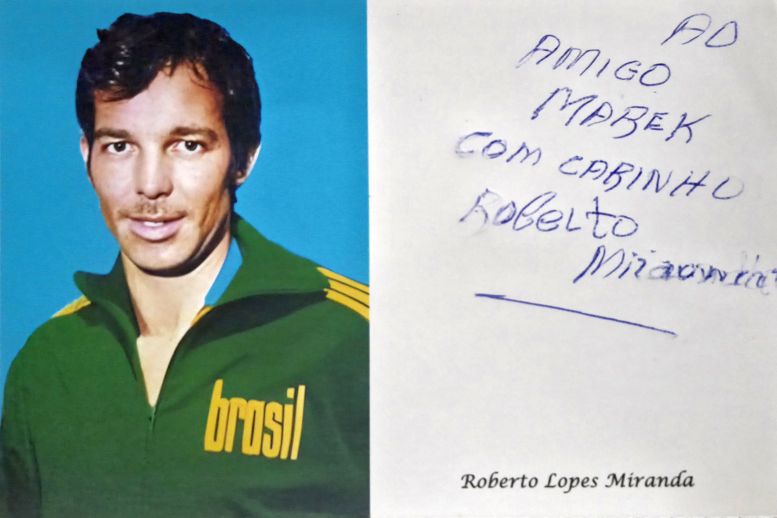 brasil
AO
AMIGO
MAREK
COM CARINHO
ROBERTO
Miranda
Roberto Lopes Miranda